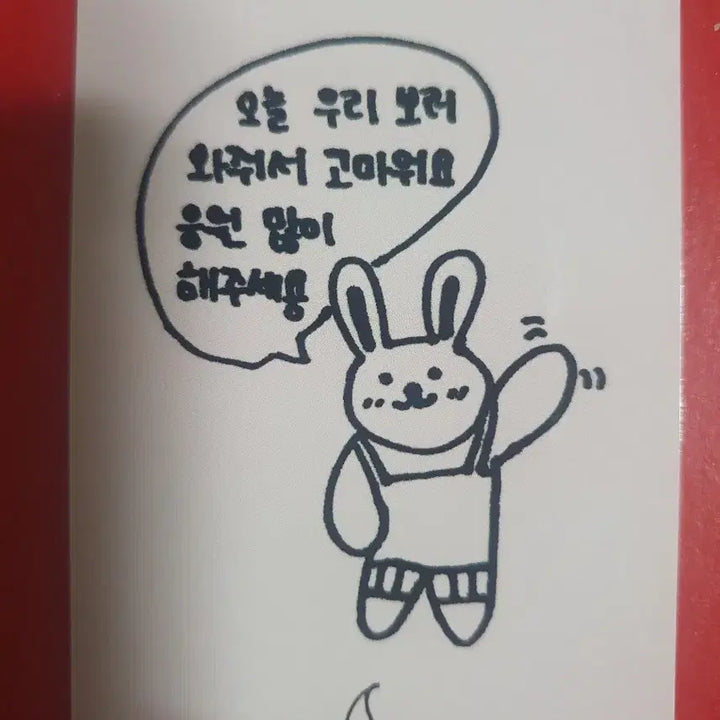 오늘 우리 보러
와줘서 고마워요
응원 많이
해주세용